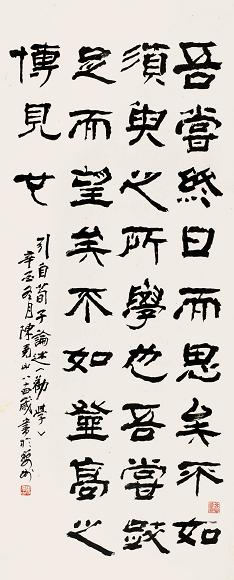 吾嘗終日而思矣不如
須臾之所學也吾嘗跂
足而望矣不如登高之
博見也
引自荀子論述《勸學》
辛丑冬月陳山歲書於